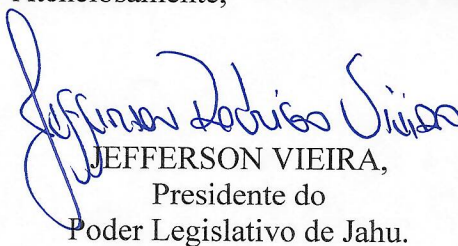 Atenciosamente,
Jefferson Rodrigo Vieira
JEFFERSON VIEIRA,
Presidente do
Poder Legislativo de Jahu.